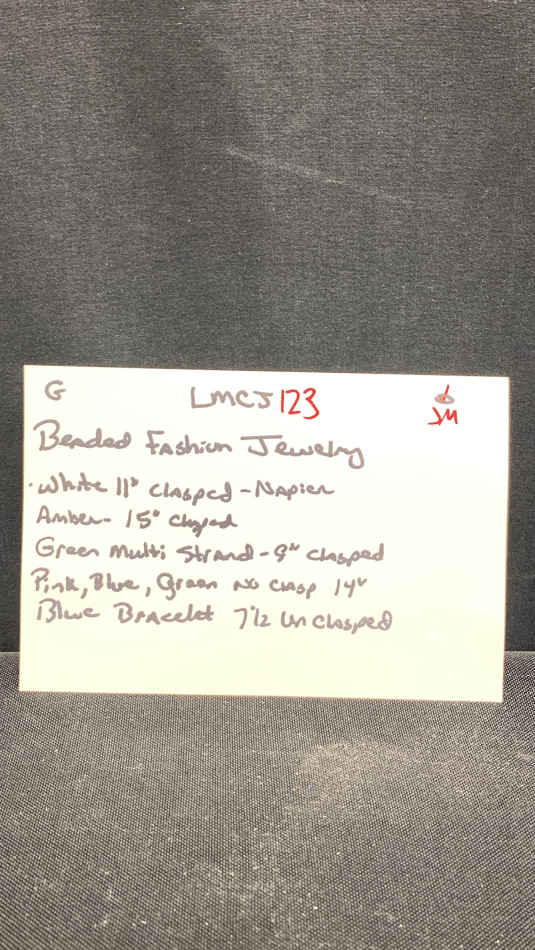 G LMCJ123 JM
Beaded Fashion Jewelry
· White 11" Clasped - Napier
Amber - 15" Clasped
Green Multi Strand - 9" Clasped
Pink, Blue, Green No Clasp 14"
Blue Bracelet 7 1/2 UnClasped